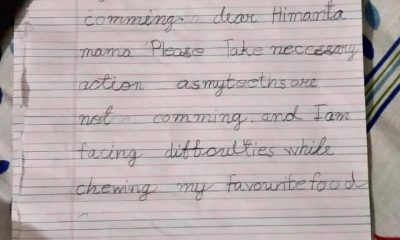 comming. dear Himanta
mama Please Take neccessary
action asmyteethsare
not comming. and Iam
facing difficulties while
chewing my favourite food